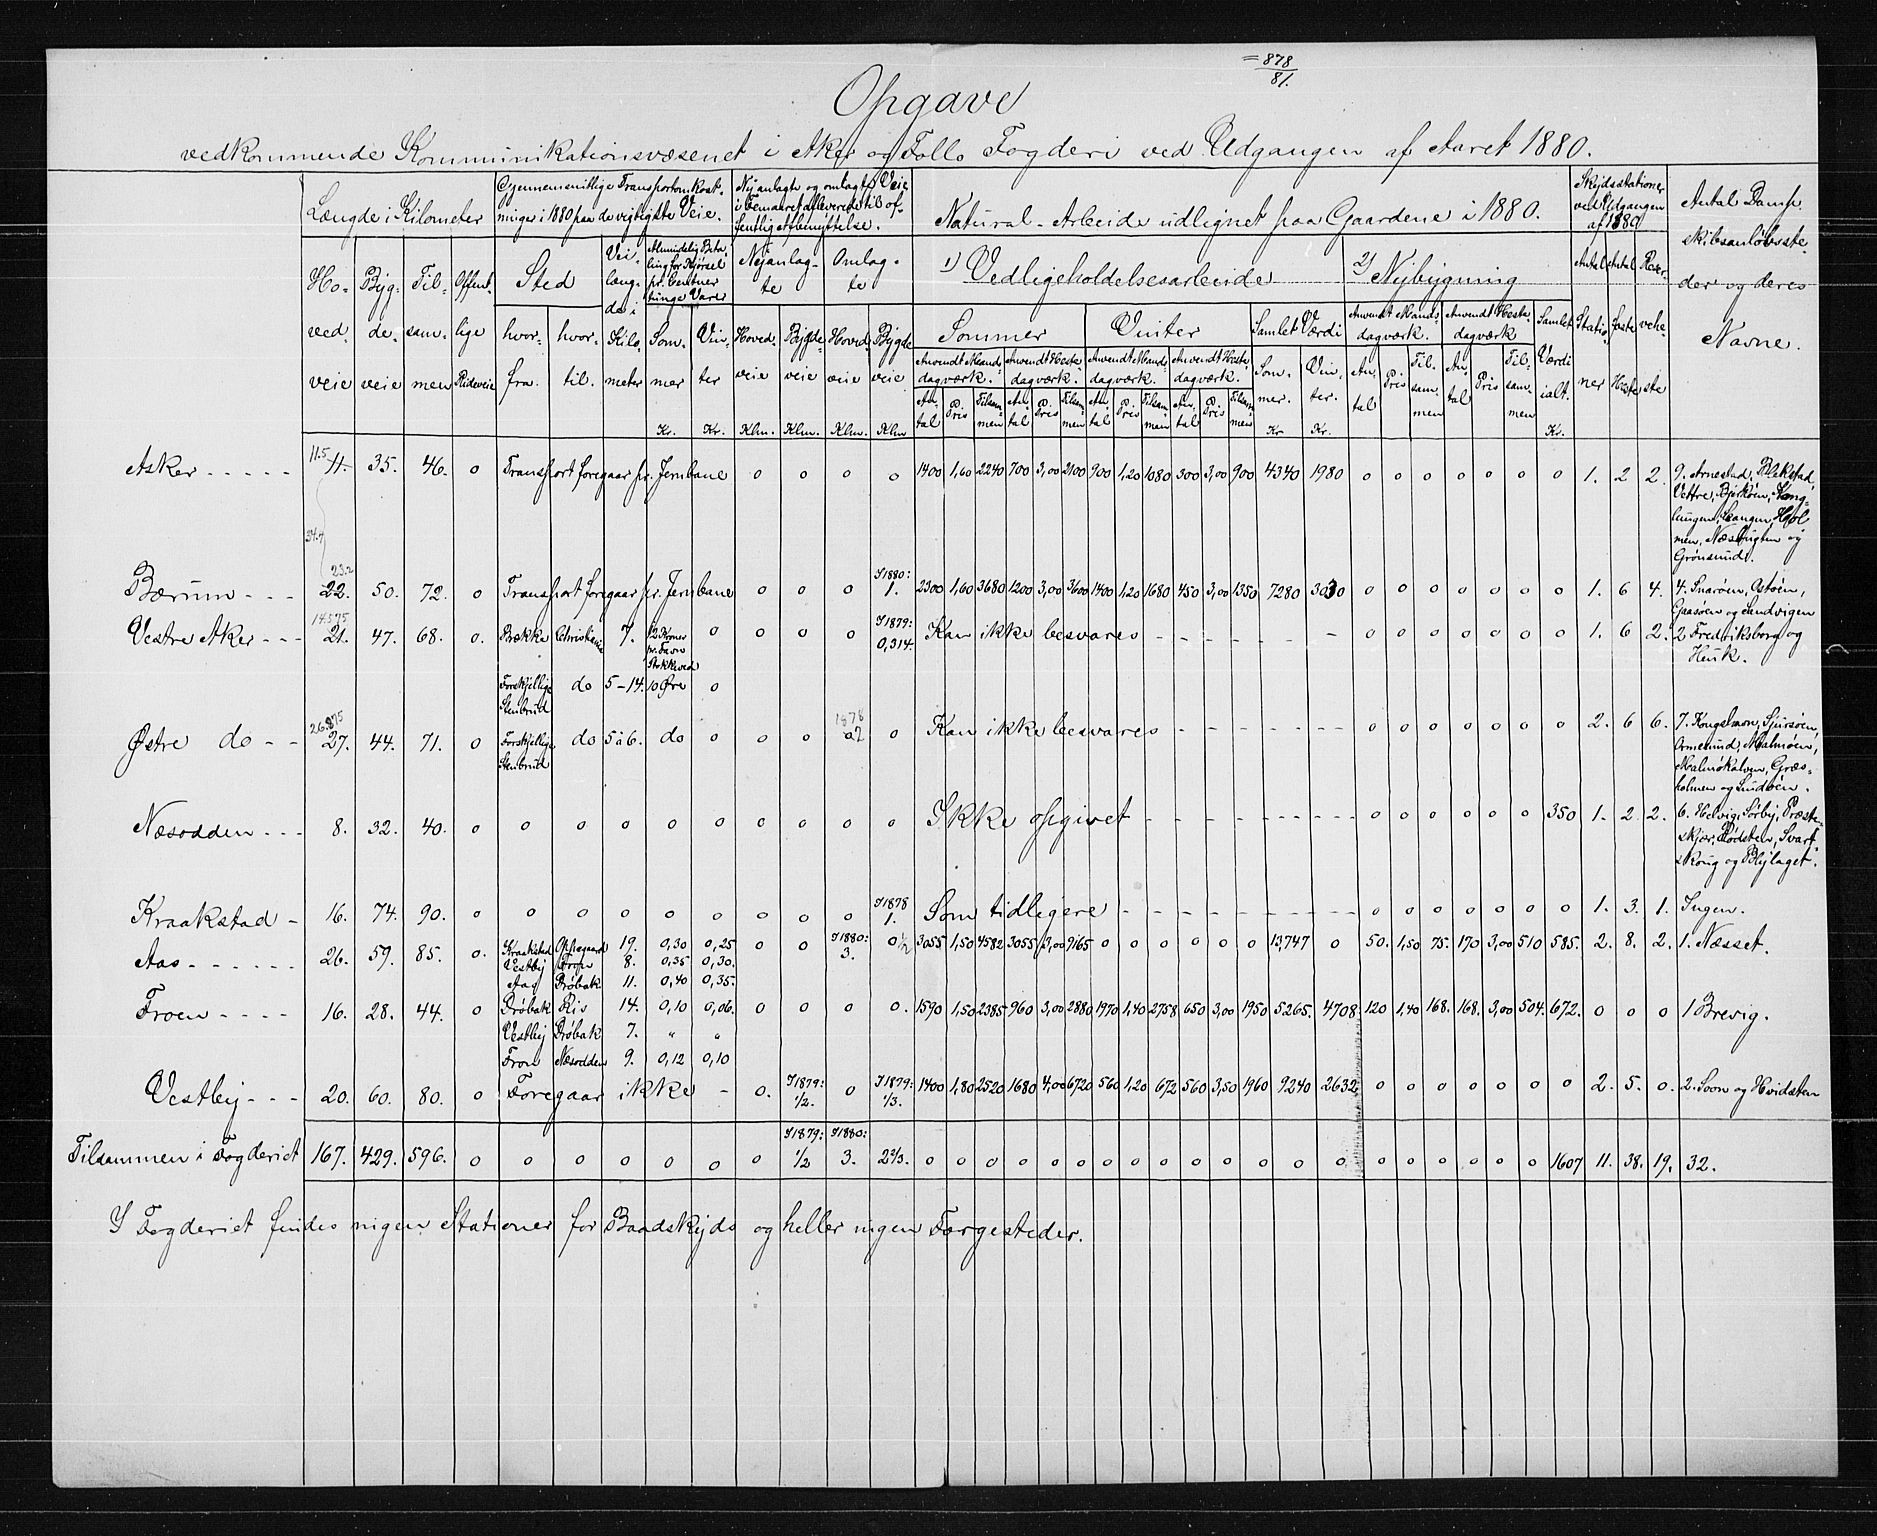 = 878
81.
Opgave
vedkommende Kommunikationsvæsenet i Aker og Follo Fogderi ved Udgangen af Aaret 1880.
Længde i Kilometer
Gjennemsnitlige Transportomkostninger i 1880 paa de vigtigste Veie.
Nyanlagte og omlagte Veie i Femaaret afleverede til offentlig Afbenyttelse.
Natural-Arbeide udlignet paa Gaardene i 1880.
Skydsstationer ved Udgangen af 1880
Antal Dampskibsanløbssteder og deres Navne.
Hovedveie
Bygdeveie
Tilsammen
Offentlige Rideveie
Sted
hvorfra.
hvortil.
Veilængde i Kilometer
Almindelig Betaling for Kjørsel pr. Centner tunge Varer
Sommer Kr.
Vinter Kr.
Nyanlagte
Omlagte
Hovedveie Klm.
Bygdeveie Klm.
Hovedveie Klm.
Bygdeveie Klm
1) Vedligeholdelsesarbeide
2) Nybygning
Sommer
Vinter
Samlet Værdi
Anvendt Mandsdagværk.
Anvendt Hestedagværk
Samlet Værdi ialt. Kr.
Anvendt Mandsdagværk.
Anvendt Hestedagværk.
Anvendt Mandsdagværk.
Anvendt Hestedagværk.
Sommer. Kr
Vinter. Kr.
Antal Pris Tilsammen Antal Pris Tilsammen Antal Pris Tilsammen Antal Pris Tilsammen
Antal Pris Tilsammen Antal Pris Tilsammen
Antal Stationer
Antal faste Heste
Reserveheste
11.5
Asker - - - - - 11. 35. 46. 0 Transport foregaar pr. Jernbane 0 0 0 0 1400 1,60 2240 700 3,00 2100 900 1,20 1080 300 3,00 900 4340 1980 0 0 0 0 0 0 0 1. 2 2. 9. Arnestad, Blakstad,
Vettre, Bjerkøen, Kong-
lungen, Leangen, Hol
men, Næsbugten og
Grønsund.
34.7
23.2
Bærum - - - 22. 50. 72. 0 Transport foregaar pr. Jernbane 0 0 0 I 1880: 1. 2300 1,60 3680 1200 3,00 3600 1400 1,20 1680 450 3,00 1350 7280 3030 0 0 0 0 0 0 0 1. 6 4. 4. Snarøen, Ostøen,
Gaasøen og Sandvigen
14.575
Vestre Aker - - - 21. 47. 68. 0. Brække Christiania 7. 12 Kroner pr. Favn Stokkeved 0 0 0 0 I 1879: 0,314. Kan ikke besvares - - - - - - - 0 0 0 0 0 0 0 1. 6 2. 2 Fredriksborg og
Huk.
Forskjellige Stenbrud do 5-14. 10 Øre 0
26.875
1878
Østre do - - 27. 44. 71. 0 Forskjellige Stenbrud do 5 à 6. do 0 0 0 0.2 0 Kan ikke besvares - - - - - - - 0 0 0 0 0 0 0 2. 6 6. 7. Kongshavn, Sjursøen,
Ormsund, Malmøen,
Malmøkalven, Græs-
holmen og Lindøen.
Næsodden - - - 8. 32. 40. 0 0 0 0 0 0 0 0 0 0 Ikke opgivet - - - - - - - - 0 0 0 0 0 0 350 1. 2 2. 6. Helvig, Sørby, Præste-
skjær, Rødsten, Svart-
skoug og Blylaget.
Kraakstad - 16. 74. 90. 0 0 0 0 0 0 0 0 0 I 1878 1. Som tidligere - - - - - - - - 0 0 0 0 0 0 0 1. 3. 1. Ingen.
Aas - - - - - - 26. 59. 85. 0. Kraakstad Oppegaard 19. 0,30 0,25 0 0 I 1880: 3. 0 1/2 3055 1,50 4582 3055 3,00 9165 0 0 0 0 0 0 13,747 0 50. 1,50 75. 170 3,00 510 585. 2. 8. 2. 1. Næsset.
Vestby Fron 8. 0,35 0,30.
Aas Drøbak 11. 0,40 0,35.
Froen - - - - 16. 28. 44. 0 Drøbak Ris 14. 0,10 0,06. 0 0 0 0. 1590 1,50 2385 960 3,00 2880 1970 1,40 2758 650 3,00 1950 5265. 4708. 120 1,40 168. 168. 3,00 504. 672. 0 0 0 1 Brevig.
Vestby Drøbak 7. " "
Fron Næsodden 9. 0,12 0,10
Vestby - - - 20. 60. 80. 0 Foregaar ikke - 0. I 1879: 1/2. 0 I 1879: 1/3. 1400 1,80 2520 1680 4,00 6720 560 1,20 672 560 3,50 1960 9240 2632 0 0 0 0 0 0 0 2. 5. 0. 2. Soon og Hvidsten
Tilsammen i Fogderiet 167. 429. 596. 0 0 0 0 0 0 0 I 1879: 1/2 I 1880: 3. 2 2/3. 0 0 0 0 0 0 0 0 0 0 0 0 0 0 0 0 0 0 0 0 1607 11. 38. 19. 32.
I Fogderiet findes ingen Stationer for Baadskyds og heller ingen Færgesteder.